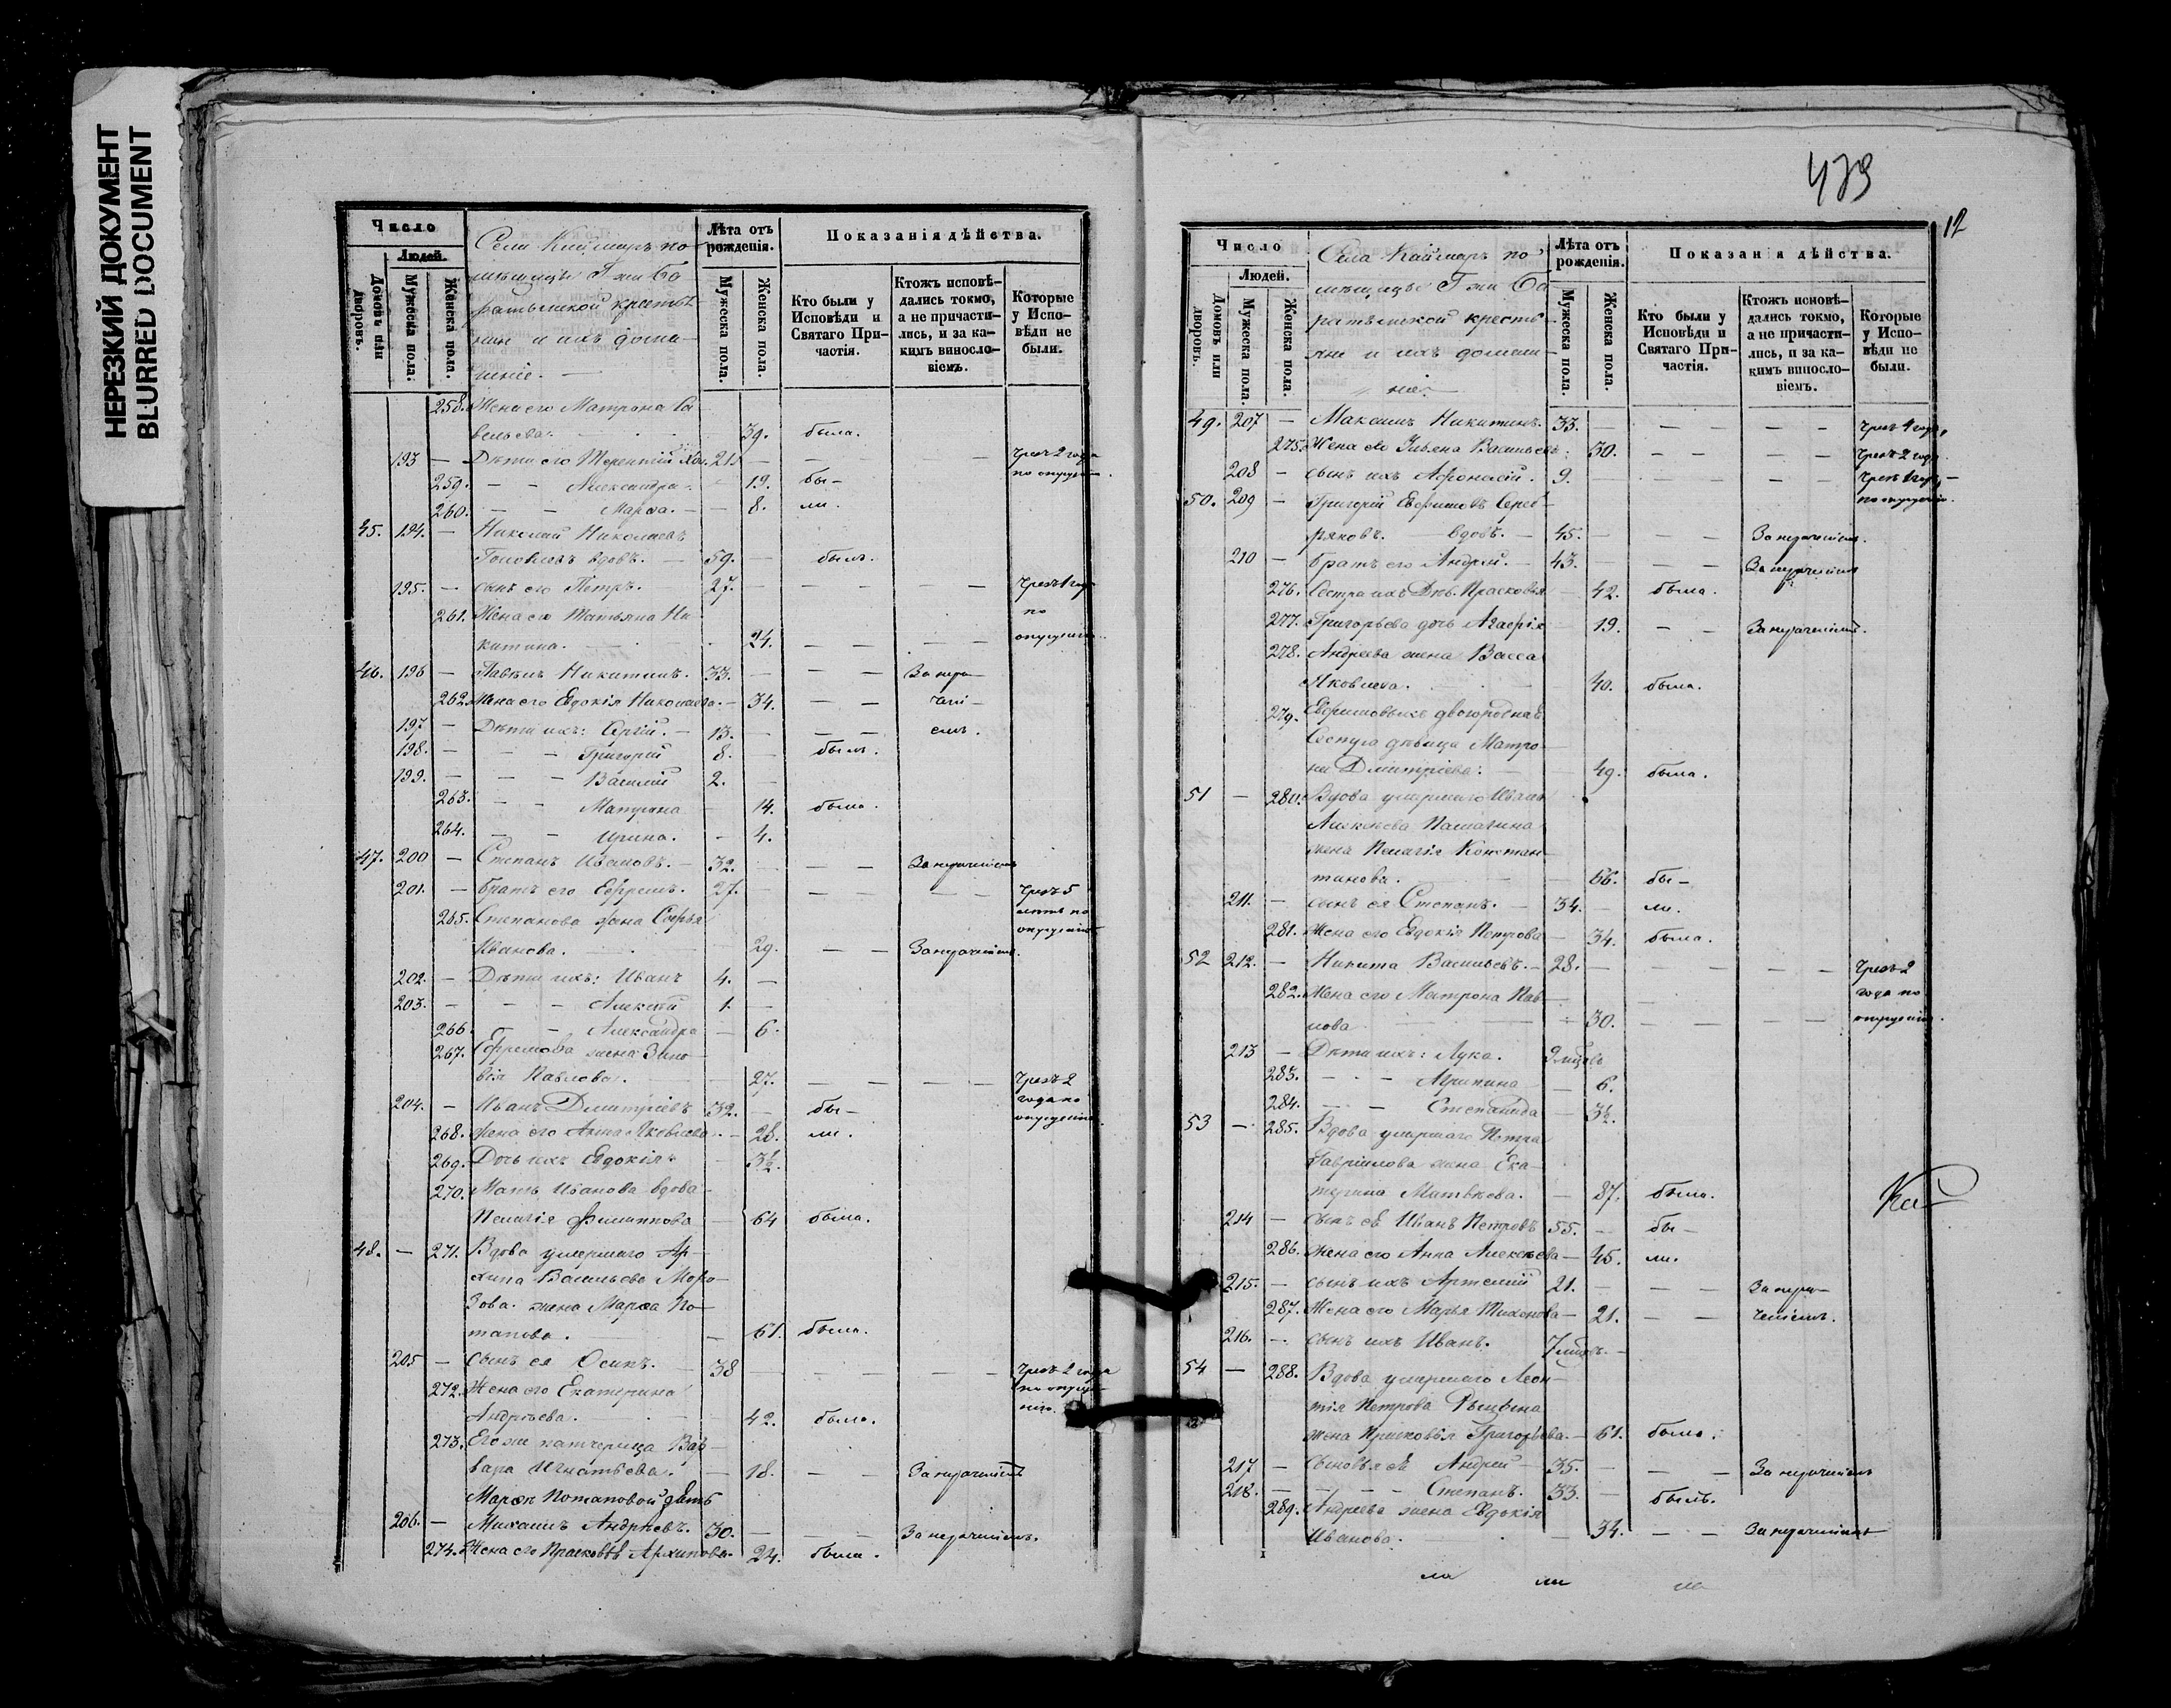 НЕРЕЗКИЙ ДОКУМЕНТ
BLURRED DOCUMENT
Число
Людей.
Домовъ или дворовъ.
Мужеска пола.
Женска пола.
Села Каймаръ по-
мѣщицы Г жи Бо
ратынской крестья-
не и ихъ домаш-
ніе.
Лѣта отъ рожденія.
Мужеска пола.
Женска пола.
Показанія дѣйства.
Кто были у Исповѣди и Святаго При-частія.
Ктожъ исповѣ-дались токмо, а не причасти-лись, и за ка-кимъ винослo-віемъ.
Которые у Испо-вѣди не были.
258. Жена его Матрона Са
вельева. 39. была.
193 — Дѣти его Терентій 21. — — — — Чрезъ 2 года
по опущенію.
259. — — Александра. 19. бы-
260. — — Марѳа. — 8. ли.
45. 194. — Николай Николаевъ
вдовъ. — 59. — былъ.
195. — сынъ его Петръ. 27. — — — — Чрезъ 1 годъ
261. Жена его Татьяна Ни по
китина. 24. — — — — опущенію.
46. 196 — Павелъ Никитинъ. 33. — — — За нера-
262. Жена его Евдокія Николаева. — 34. — — чені-
197 — Дѣти ихъ: Сергій. — 13. — — — емъ.
198. — — — Григорій 8. — былъ.
199. — — — Василій 2. —
263. — — Матрона — 14. была.
264. — — Ирина. — 4.
47. 200 — Степанъ Ивановъ. — 32. — — — За нераченіемъ
201. — братъ его Ефремъ. 27. — — — — Чрезъ 5
лѣтъ по
265. Степанова жена Софья опущенію
Иванова. 29. — — За нераченіемъ.
202. — Дѣти ихъ: Иванъ 4. —
203. — — — Алексѣй 1. —
266. — — Александра — 6.
267. Ефремова жена Зино-
вія Павлова. 27. — — — — Чрезъ 2
204. — Иванъ Дмитріевъ 32. — бы- года по
опущенію.
268. жена его Анна Яковлева. — 28. ли.
269. Дочь ихъ Евдокія — 3½.
270. Мать Иванова вдова
Пелагія Филиппова — 64 была.
48. — 271. Вдова умершаго Ар-
хипа Васильева Моро-
зова. жена Марѳа По-
тапова. — 61. была.
205 — Сынъ ея Осипъ. — 38 — — — — Чрезъ 2 года
272. Жена его Екатерина по опуще-
нію.
Андреева. 42. была.
273. Его же патчерица Вар-
вара Игнатьева. — 18. — — За нераченіемъ
Марѳы Потаповой зять
206. — Михаилъ Андреевъ. 30. — — — За нераченіемъ.
274. Жена его Прасковья Архипова. 24. была.
479
12
Число
Людей.
Домовъ или дворовъ.
Мужеска пола.
Женска пола.
Села Каймаръ по
мѣщицы Г жи Бо
ратынской крестья-
не и ихъ домаш-
ніе.
Лѣта отъ рожденія.
Мужеска пола.
Женска пола.
Показанія дѣйства.
Кто были у Исповѣди и Святаго При-частія.
Ктожъ исповѣ-дались токмо, а не причасти-лись, и за ка-кимъ винослo-віемъ.
Которые у Испо-вѣди не были.
49. 207 — Максимъ Никитинъ. 33. — — — — — Чрезъ 4 года,
275. Жена его Ульяна Васильева. 30. — — — — Чрезъ 2 года
208 — сынъ ихъ Афонасій. 9. — — — — — Чрезъ 1 годъ —
50. 209 — Григорій Ефимовъ Сереб- по опущенію.
ряковъ. — вдовъ. — 45. — — — За нераченіемъ.
210 — братъ его Андрей. — 43. — — — За нераченіемъ
276. Сестра ихъ Дѣв. Прасковья — 42. была.
277. Григорьева дочь — 19. — — За нераченіемъ.
278. Андреева жена Васса
Яковлева. — 40. была.
279. Ефимовыхъ двоюродная
Сестра дѣвица Матро-
на Дмитріева: — 49. была.
51 — 280. Вдова умершаго Ивана
Алексѣева
жена Пелагія Констан-
тинова. 66. бы-
211. — сынъ ея Степанъ. — 34. — ли.
281. Жена его Евдокія Петрова — 34. была.
52 212. — Никита Васильевъ. — 28. — — — — — Чрезъ 2
282. Жена его Матрона Пав- года по
лова — 30. — — — — опущенію.
213 — Дѣти ихъ: Лука. 9 мѣсяцъ
283. — — — Агрипина — 6.
284. — — Степанида — 3½.
53 — 285. Вдова умершаго Петра
Гаврилова жена Ека-
терина Матвѣева. — 87. была.
214 — сынъ ея Иванъ Петровъ 55. — бы-
286. жена его Анна Алексѣева — 45. ли.
215. — сынъ ихъ Артемій 21. — — — За нера-
287. Жена его Марья Тихонова — 21. — — ченіемъ.
216. — сынъ ихъ Иванъ. 7 мѣсяц. —
54 — 288. Вдова умершаго Леон-
тія Петрова
жена Прасковья Григорьева. — 61. была.
217 — Сыновья ея Андрей — 35. — — — За нераченіемъ
218. — — — Степанъ. 33. — былъ.
289. Андреева жена Евдокія
Иванова. 34. — — За нераченіемъ
ла ли ла